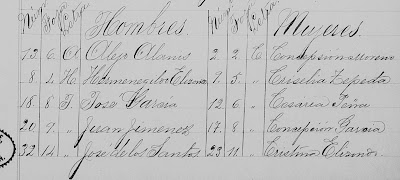 Núm Foja Letra Hombres. Núm Foja Letra Mujeres.
13. 6 A Alejo Alanis 2. 2. C Concepcion Moreno
8 4 H. Hermenegildo Elizondo 9. 5. " Crisilia Zepeda
18. 8 J. José Garcia 12 6 " Cesarea Peña
20 9. " Juan Jimenez 17. 8 " Concepcion Garcia
32 14 " José de los Santos 23 11. " Cristina Elizondo.